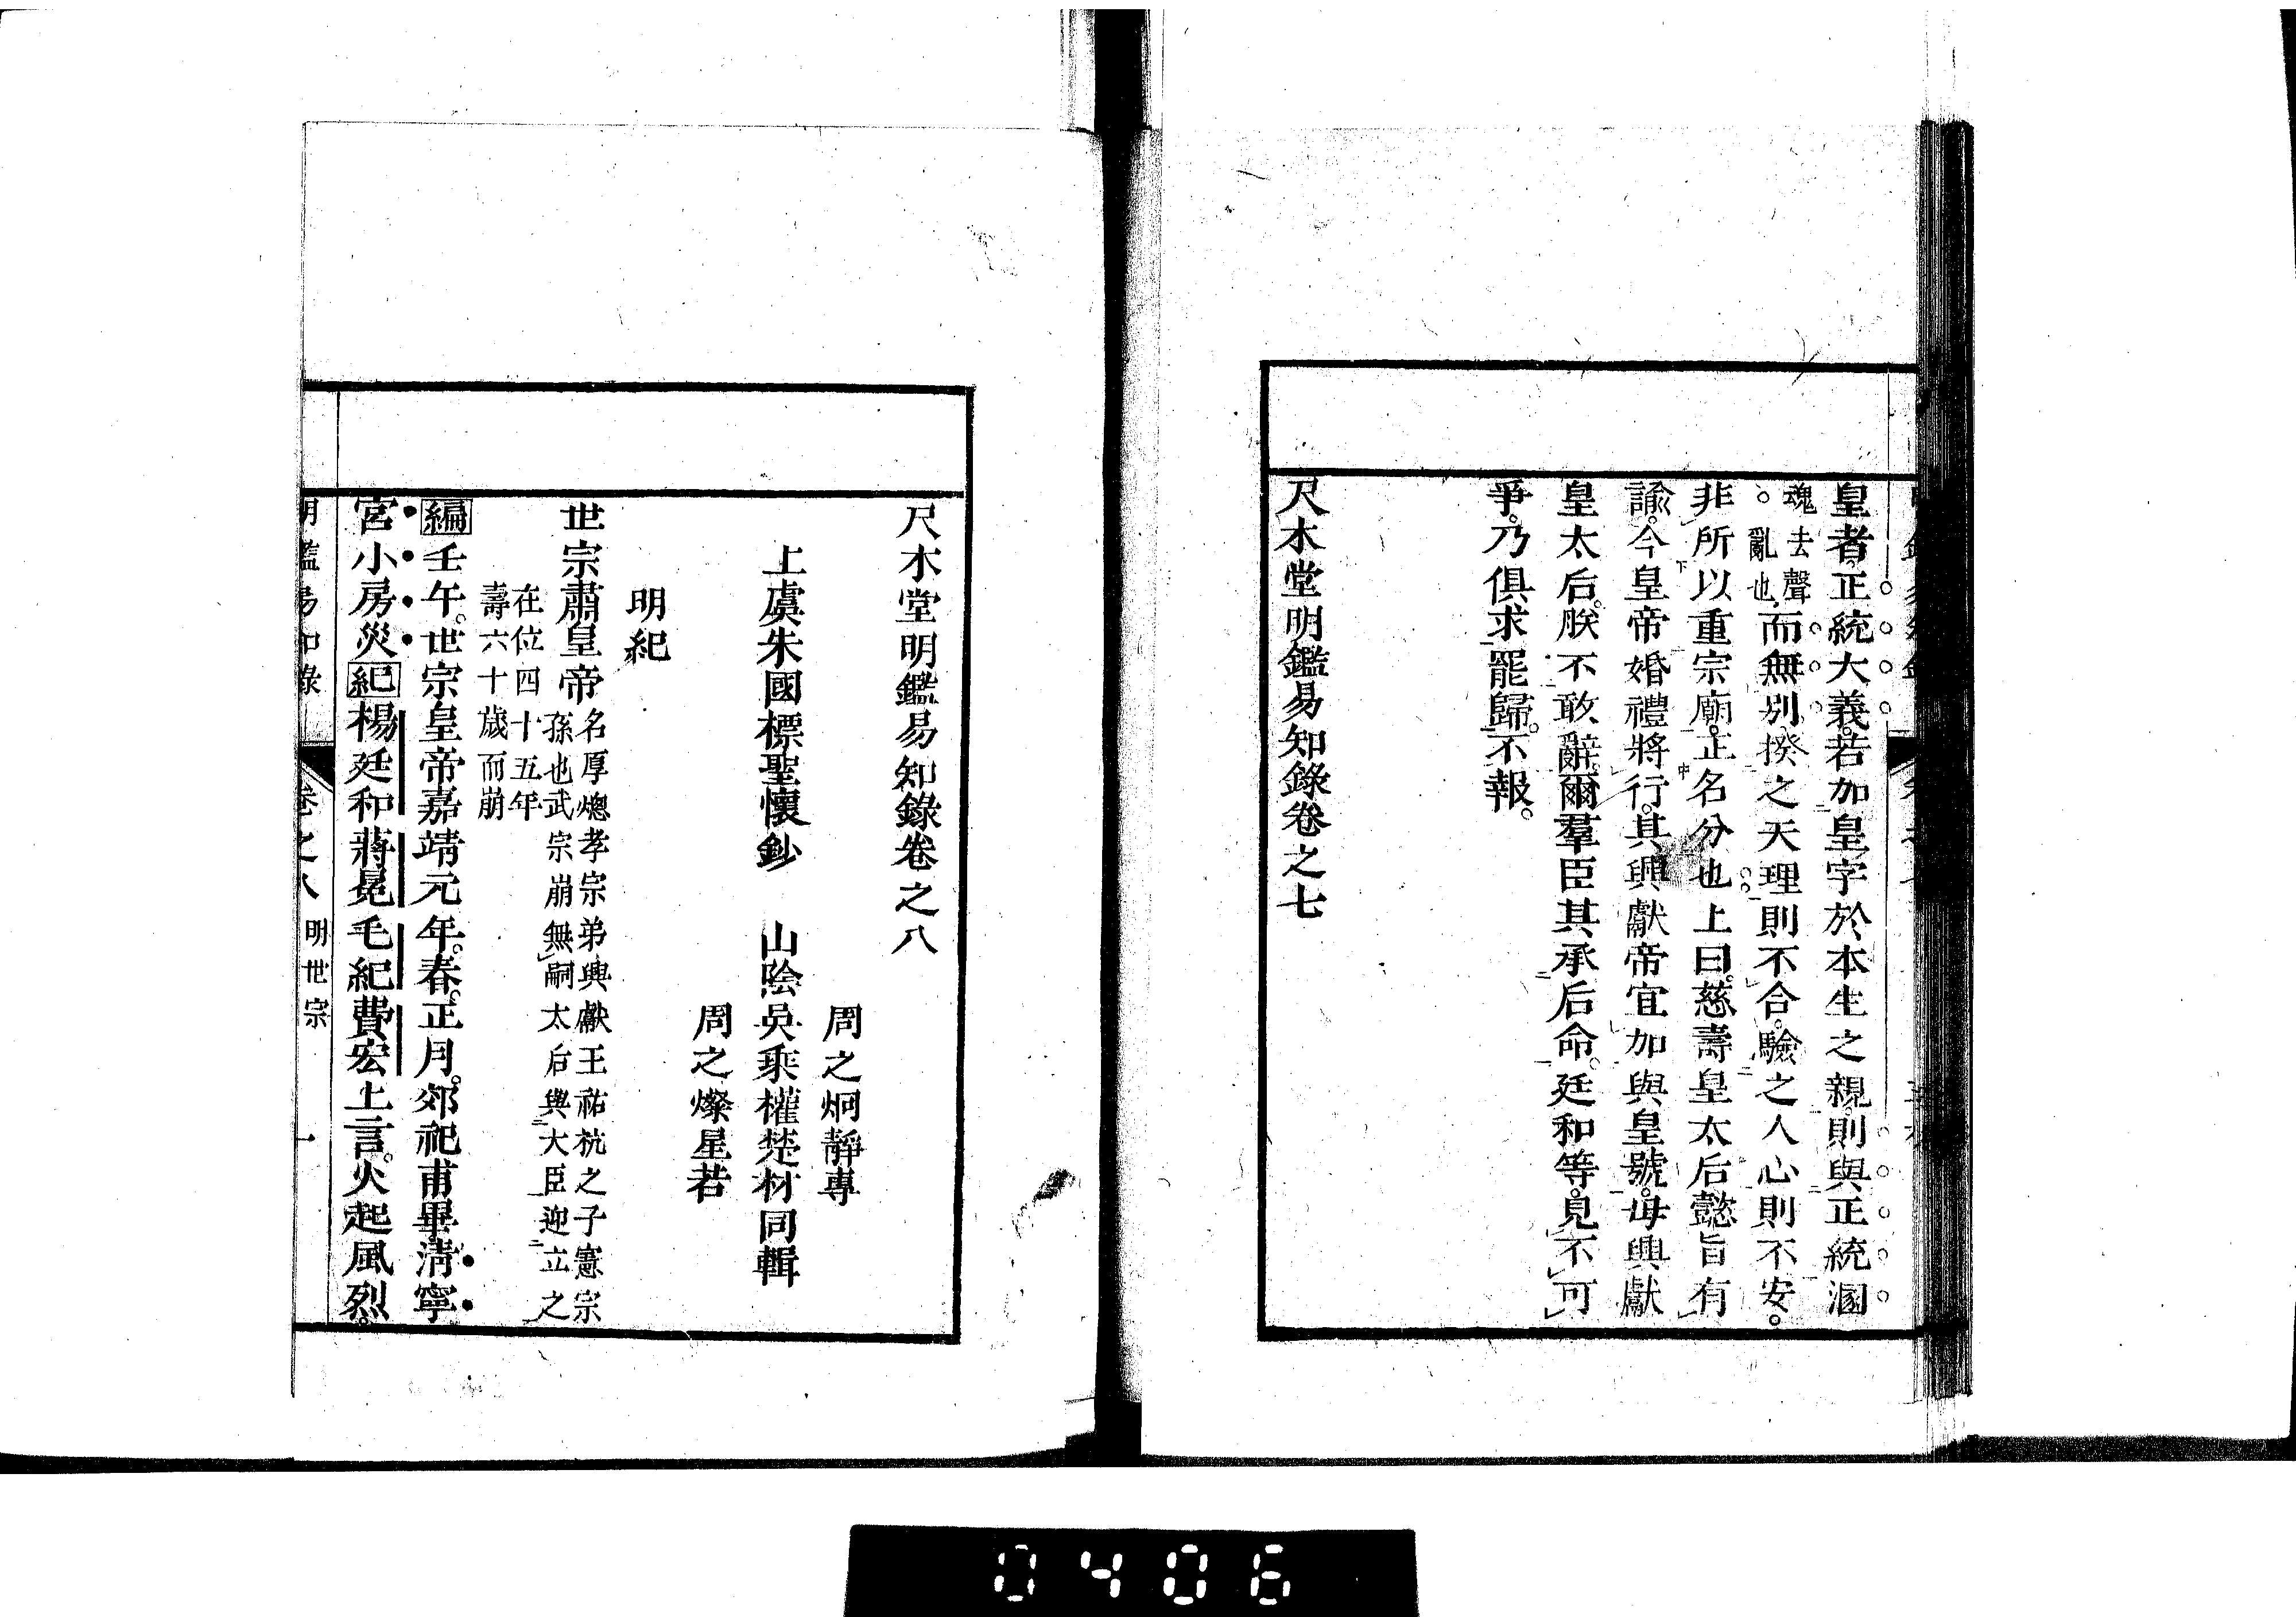 皇者。正統大義。若加皇字於本生之親。則與正統溷
魂去聲。亂也而無別。揆之天理則不合。驗之人心則不安。
非所以重宗廟。正名分也上曰。慈壽皇太后懿旨有
諭。今皇帝婚禮將行。其興獻帝宜加與皇號。母興獻
皇太后。朕不敢辭。爾羣臣其承后命。廷和等。見不可
爭。乃俱求罷歸。不報。
尺木堂明鑑易知錄卷之七
尺木堂明鑑易知錄卷之八
周之炯靜專
上虞朱國標聖懷鈔 山陰吳乘權楚材同輯
周之燦星若
明紀
世宗肅皇帝 名厚熜孝宗弟興獻王祐杭之子憲宗
孫也武宗崩無嗣太后與大臣迎立之
在位四十五年
壽六十歲而崩
編壬午。世宗皇帝嘉靖元年。春。正月。郊祀甫畢。清寧
宮小房災紀楊廷和蔣冕毛紀費宏上言。火起風烈。
明鑑易知錄 卷之八 明世宗 一
0406